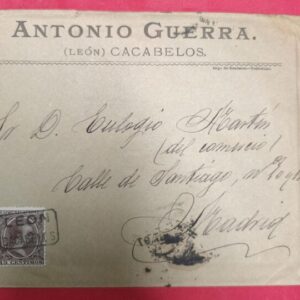 ANTONIO GUERRA.
(LEÓN) CACABELOS.
Sr D. Eulogio Martín
(del comercio)
Calle de Santiago, nº
Madrid
LEON